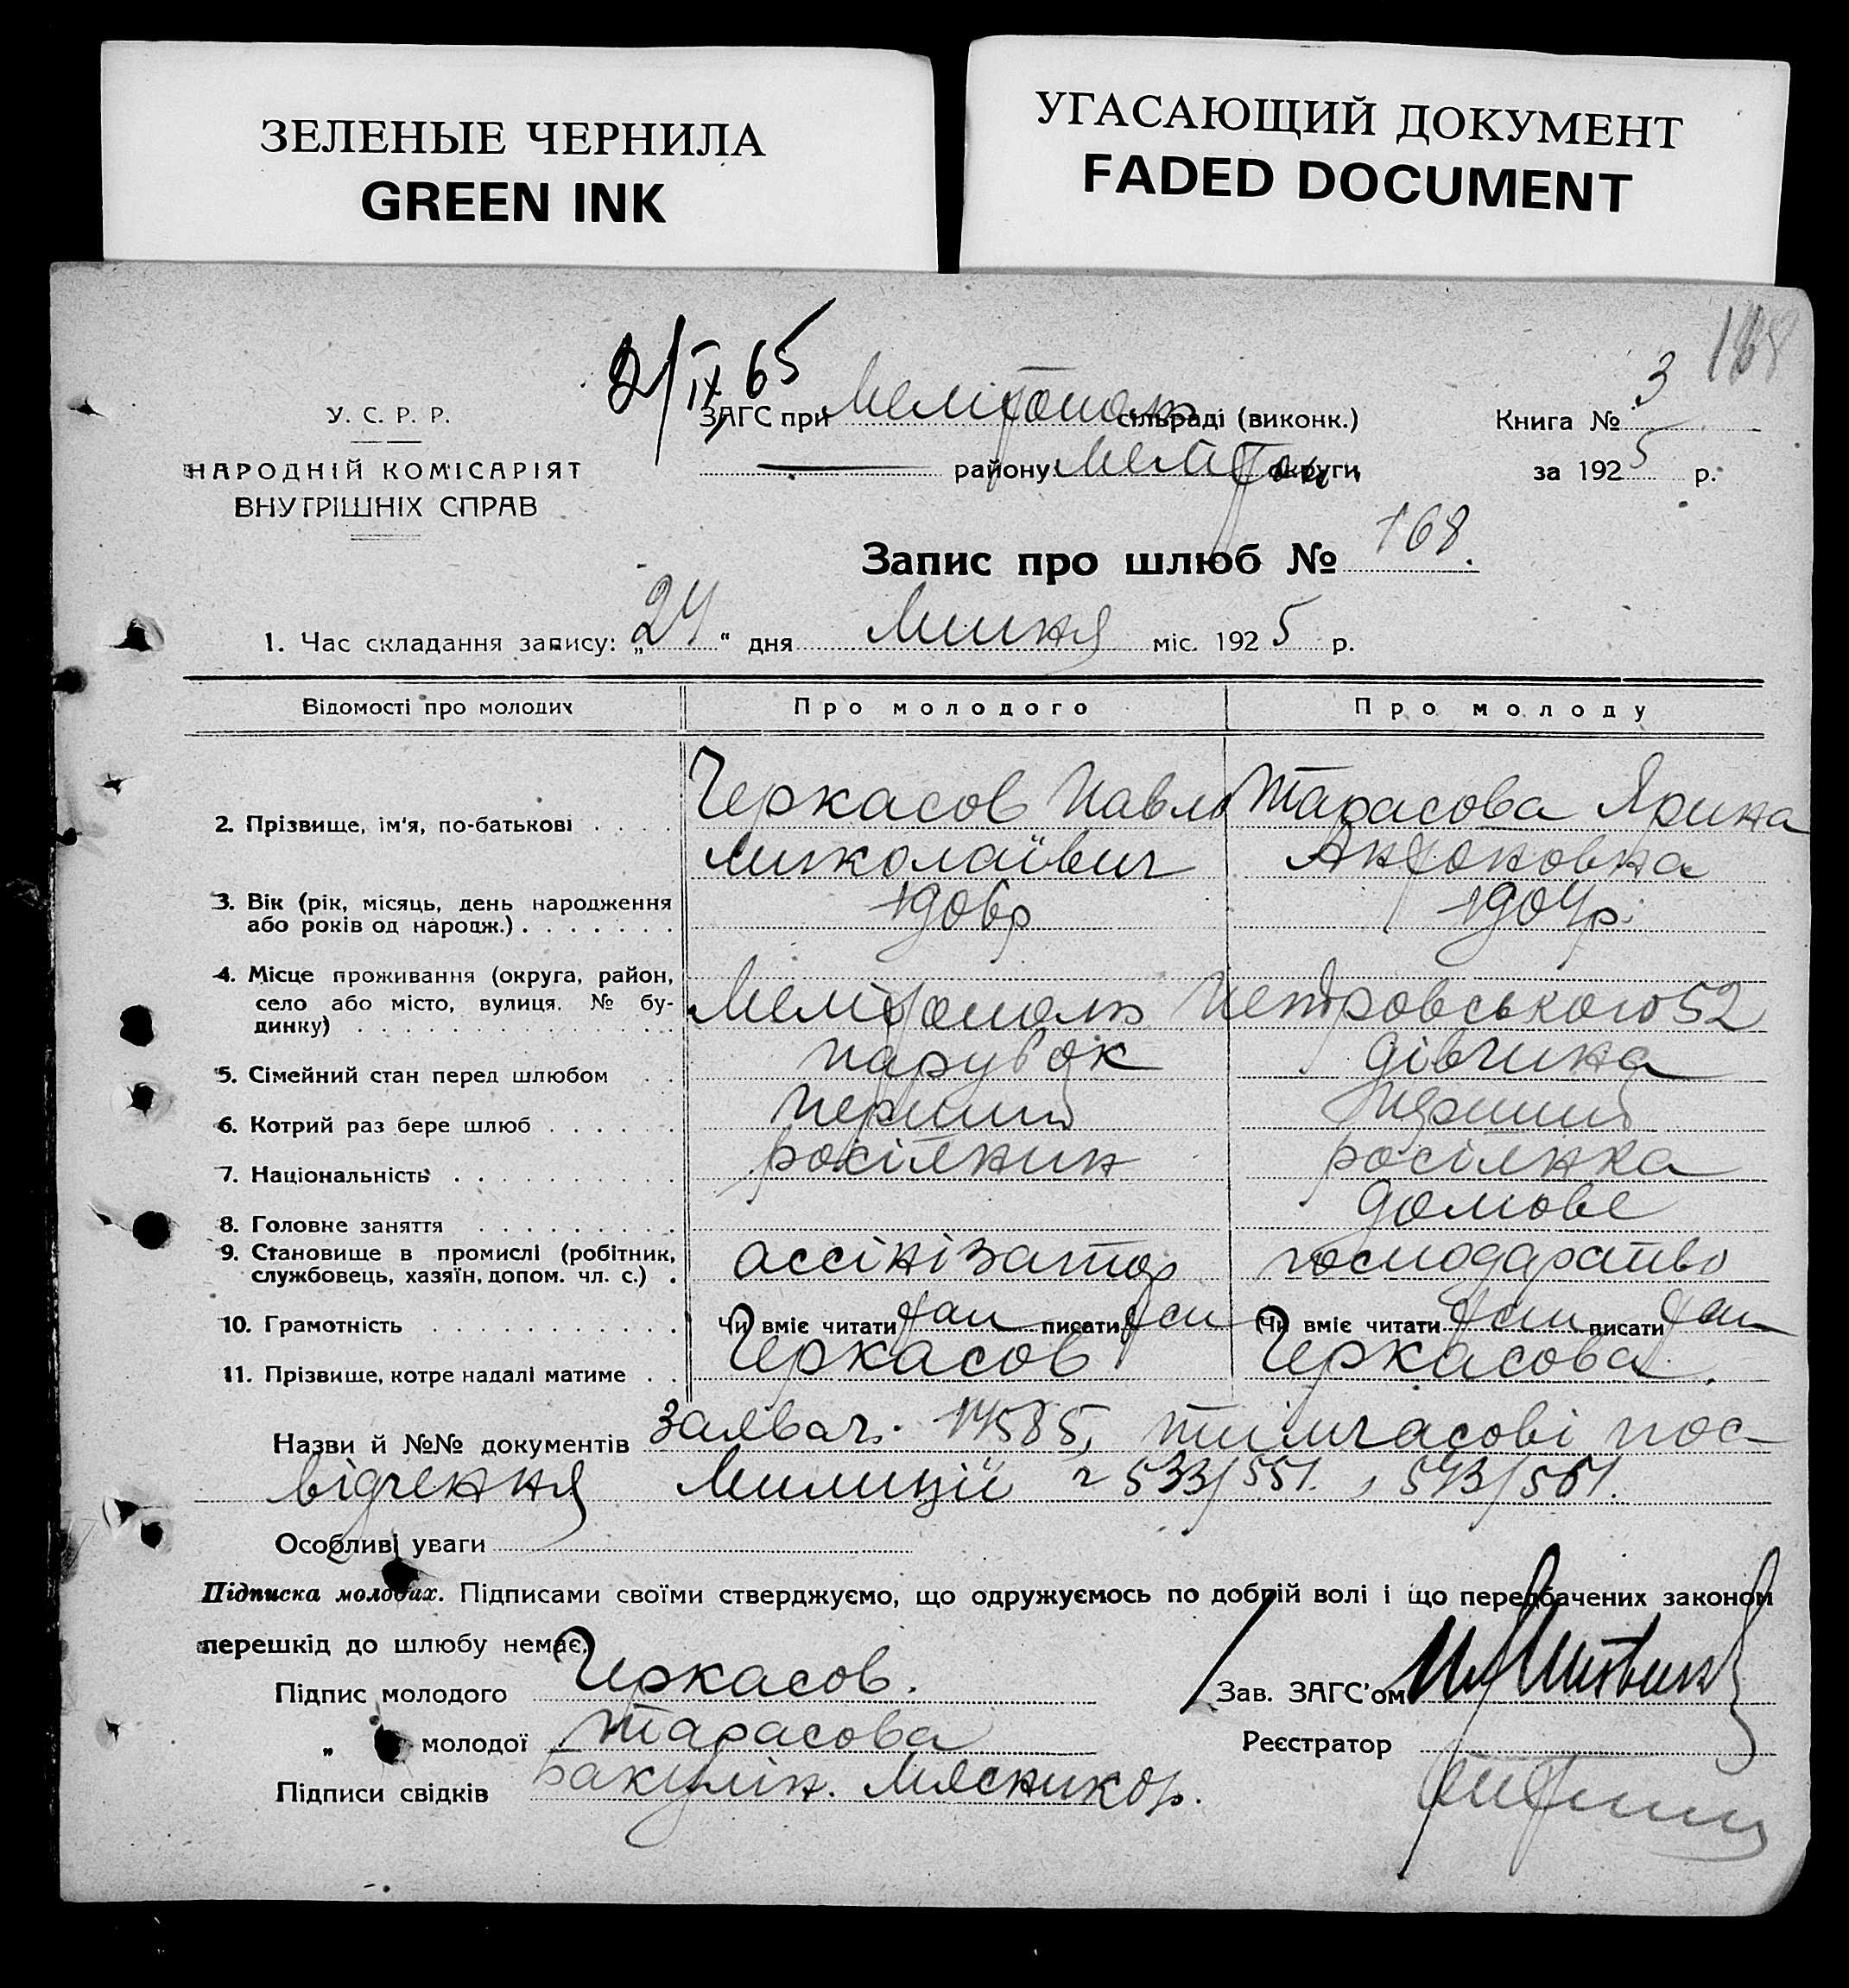 ЗЕЛЕНЫЕ ЧЕРНИЛА
GREEN INK
УГАСАЮЩИЙ ДОКУМЕНТ
FADED DOCUMENT
2/IX 65
168
У. С. Р. Р.
НАРОДНІЙ КОМІСАРІЯТ
ВНУТРІШНІХ СПРАВ
ЗАГС при Мелітополь сільраді (виконк.)
району Мелітоп. округи
Книга № 3
за 1925 р.
Запис про шлюб № 168.
1. Час складання запису: „24“ дня Липня міс. 1925 р.
Відомості про молодих Про молодого Про молоду
2. Прізвище, ім'я, по-батькові Черкасов Павло Миколаївич Тарасова Ярина Антоновна
3. Вік (рік, місяць, день народження або років од народж.) 1906р 1904р.
4. Місце проживання (округа, район, село або місто, вулиця. № будинку) Мелітополь Петровського 52
5. Сімейний стан перед шлюбом парубок дівчина
6. Котрий раз бере шлюб перший перший
7. Національність росіянин росіянка
8. Головне заняття домове
9. Становище в промислі (робітник, службовець, хазяїн, допом. чл. с.) ассінізатор господарство
10. Грамотність Чи вміє читати так писати так Чи вміє читати так писати так
11. Прізвище, котре надалі матиме Черкасов Черкасова.
Назви й №№ документів 14585, тимчасові пос-
відчення Милиції 533/551. 543/561.
Особливі уваги
Підписка молодих. Підписами своїми стверджуємо, що одружуємось по добрій волі і що передбачених законом
перешкід до шлюбу немає.
Підпис молодого Черкасов. Зав. ЗАГС'ом
„ молодої Тарасова Реєстратор
Підписи свідків Бакулін.